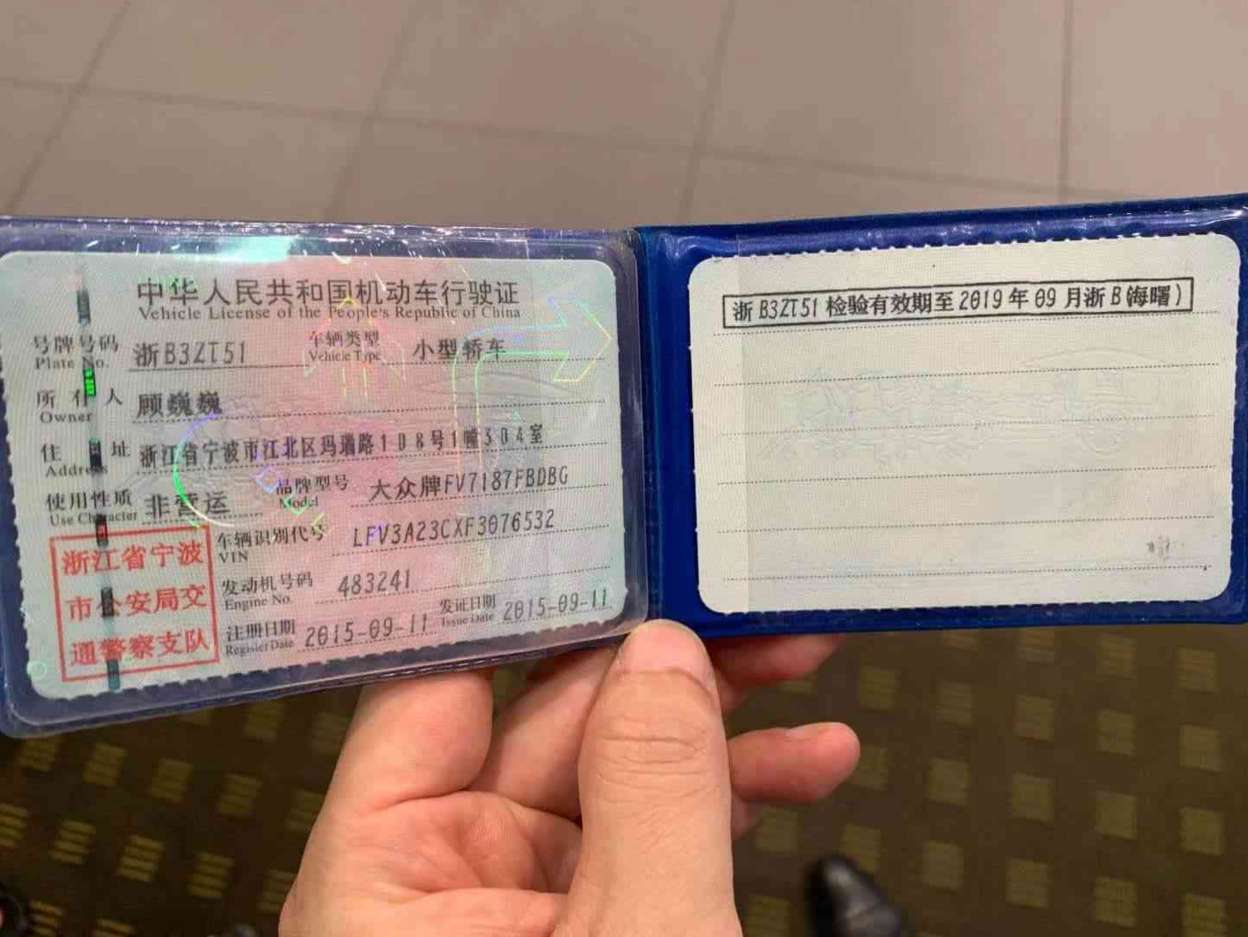 中华人民共和国机动车行驶证
Vehicle License of the People's Republic of China
号牌号码 浙B3ZT51 车辆类型 小型轿车
Plate No. Vehicle Type
所有人 顾巍巍
Owner
住址 浙江省宁波市江北区玛瑙路108号1幢304室
Address
使用性质 非营运 品牌型号 大众牌FV7187FBDBG
Use Character Model
浙江省宁波
市公安局交
通警察支队
车辆识别代号 LFV3A23CXF3076532
VIN
发动机号码 483241
Engine No.
注册日期 2015-09-11 发证日期 2015-09-11
Register Date Issue Date
浙B3ZT51检验有效期至2019年09月浙B(海曙)